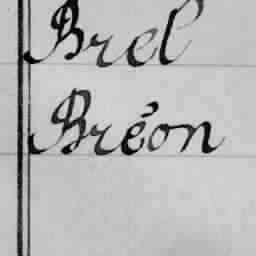 Brel
Bréon